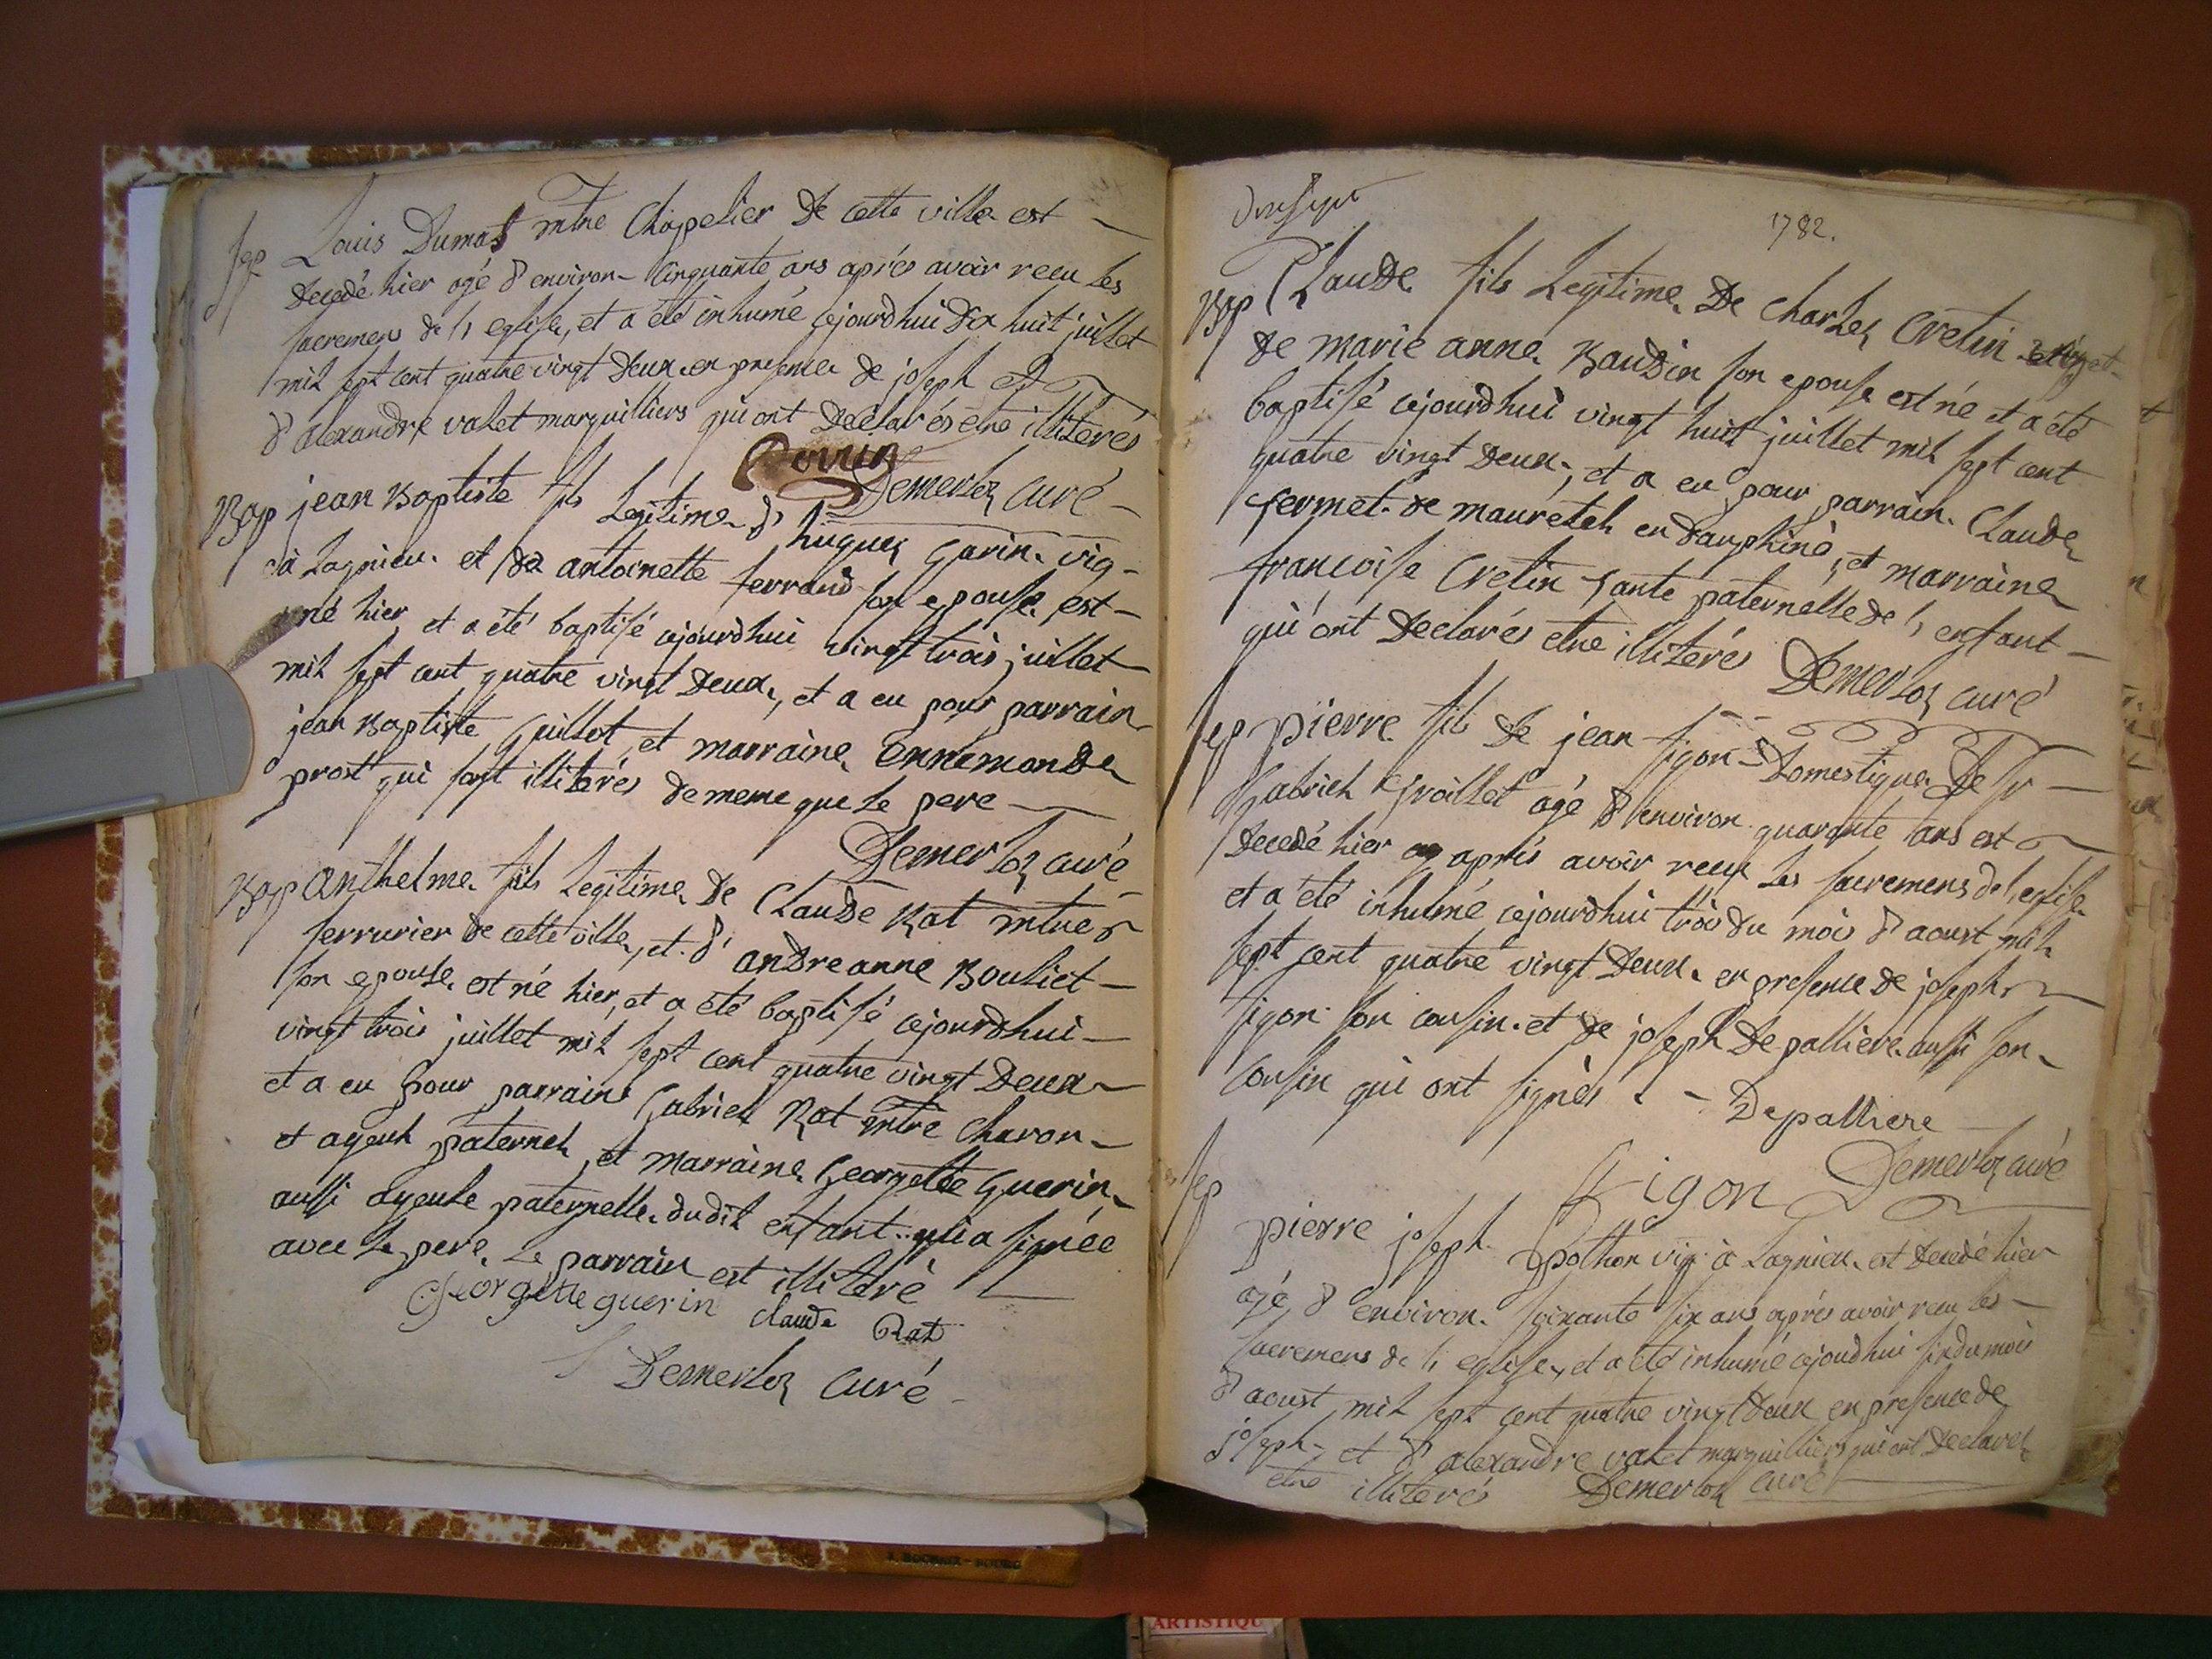 sep Louis Dumas mtre Chapelier de cette ville est
decedé hier agé d'environ cinquante ans aprés avoir recu les
sacremens de l'eglise, et a été inhumé cejourdhui dix huit juillet
mil sept cent quatre vingt deux en presence de joseph et
d'alexandre valet marguilliers qui ont declarés etre illiterés
Perrin Demerloz curé
Bap jean Baptiste fils Legitime d'hugues Garin vig-
à Lagnieu et de antoinette ferrand son epouse est
né hier et a été baptisé cejourdhui vingt trois juillet
mil sept cent quatre vingt deux, et a eu pour parrain
jean Baptiste Guillot, et marraine Ennemonde
prost qui sont illiterés de meme que le pere
Demerloz curé
Bap Anthelme fils Legitime de Claude Rat mtre
serrurier de cette ville, et d'andreanne Bouliet
son epouse est né hier, et a été baptisé cejourdhui
vingt trois juillet mil sept cent quatre vingt deux
et a eu pour parrain Gabriel Rat mtre charon
et ayeul paternel, et marraine Georgette Guerin
aussi ayeule paternelle dudit enfant qui a signée
avec le pere le parrain est illiteré
Georgette guerin claude Rat
Demerloz curé
1782.
Bap Claude fils Legitime de charles Cretin et
de marie anne Baudin son epouse est né et a été
baptisé cejourdhui vingt huit juillet mil sept cent
quatre vingt deux, et a eu pour parrain Claude
fermet de mauretel en dauphiné, et marraine
françoise Cretin tante paternelle de l'enfant
qui ont declarés etre illiterés Demerloz curé
sep pierre fils de jean figon domestique de sr
Gabriel Groillet agé d'environ quarante ans est
decedé hier aprés avoir recu les sacremens de l'eglise
et a été inhumé cejourdhui trois du mois d'aoust mil
sept cent quatre vingt deux en presence de joseph
figon son cousin et de joseph Depalliere aussi son
cousin qui ont signés Depalliere
figon Demerloz curé
sep
pierre joseph pothon vig à Lagnieu est decedé hier
agé d'environ soixante six ans aprés avoir recu les
sacremens de l'eglise, et a été inhumé cejourdhui six du mois
d'aoust mil sept cent quatre vingt deux en presence de
joseph et d'alexandre valet marguilliers qui ont declarés
etre illiterés Demerloz curé
ARTISTIQU